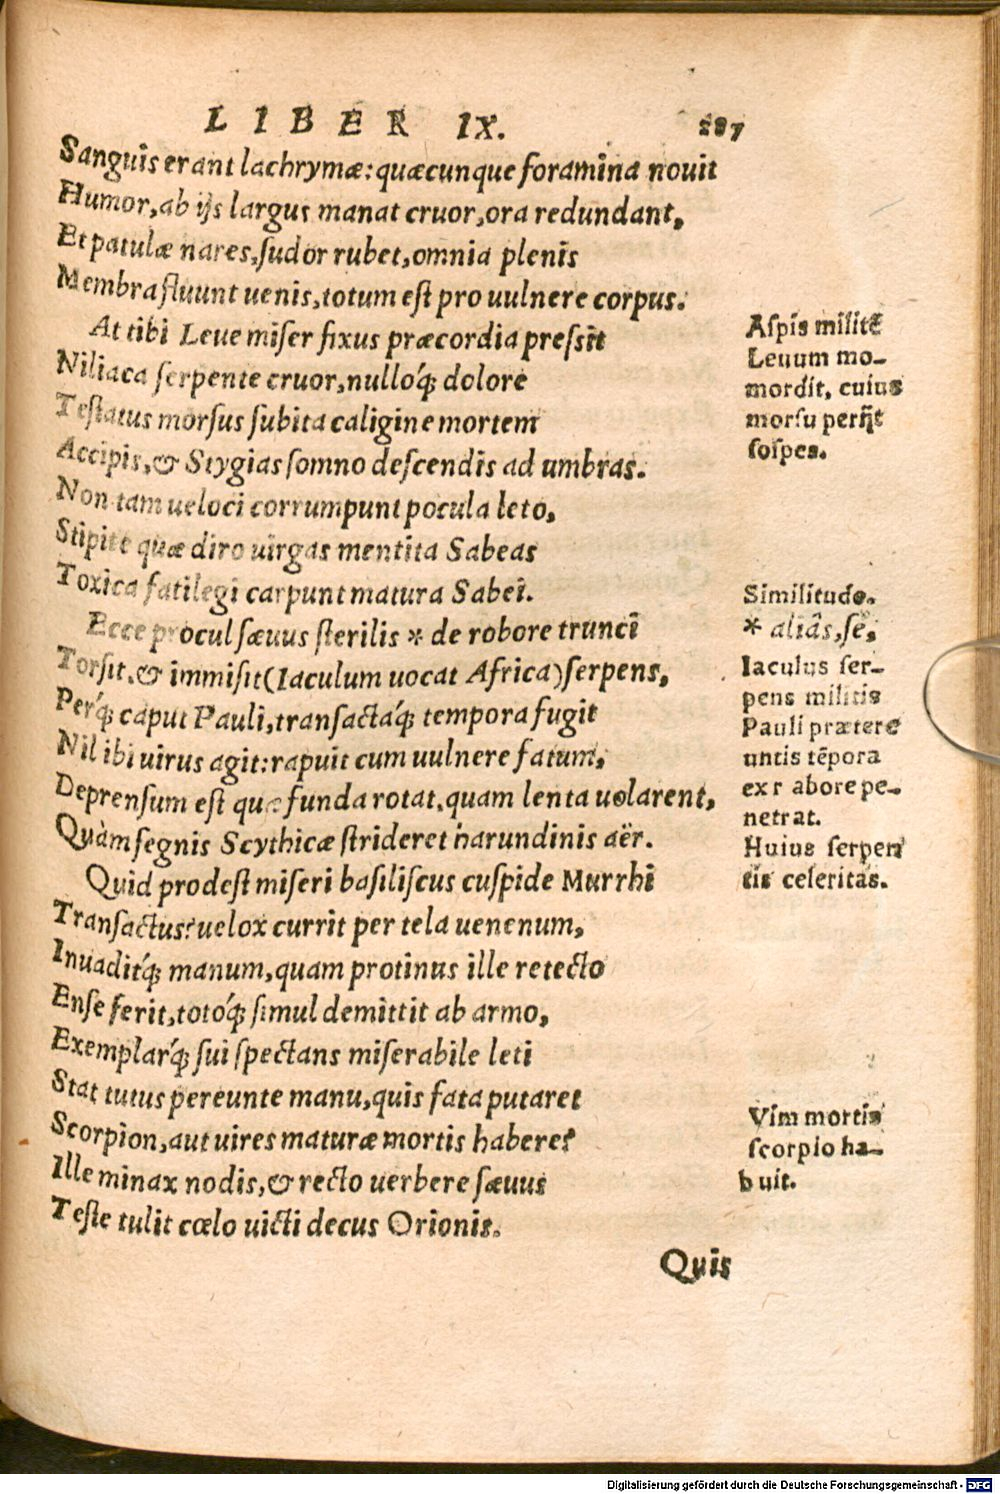 LIBER IX. 287
Sanguis erant lachrymæ: quæcunque foramina nouit
Humor, ab ijs largus manat cruor, ora redundant,
Et patulæ nares, sudor rubet, omnia plenis
Membra fluunt uenis, totum est pro uulnere corpus.
At tibi Leue miser fixus præcordia pressit
Niliaca serpente cruor, nullóq; dolore
Testatus morsus subita caligine mortem
Accipis, & Stygias somno descendis ad umbras.
Non tam ueloci corrumpunt pocula leto,
Stipite quæ diro uirgas mentita Sabeas
Toxica fatilegi carpunt matura Sabei.
Ecce procul sæuus sterilis * de robore trunci
Torsit, & immisit (Iaculum uocat Africa) serpens,
Perq́; caput Pauli, transactáq; tempora fugit
Nil ibi uirus agit: rapuit cum uulnere fatum,
Deprensum est quæ funda rotat, quam lenta uolarent,
Quàm segnis Scythicæ strideret harundinis aër.
Quid prodest miseri basiliscus cuspide Murrhi
Transactus? uelox currit per tela uenenum,
Inuaditq́; manum, quam protinus ille retecto
Ense ferit, totóq; simul demittit ab armo,
Exemplarq́; sui spectans miserabile leti
Stat tutus pereunte manu, quis fata putaret
Scorpion, aut uires maturæ mortis habere?
Ille minax nodis, & recto uerbere sæuus
Teste tulit cœlo uicti decus Orionis.
Quis
Aspis militē
Leuum mo-
mordit, cuius
morsu perijt
sospes.
Similitudo.
* aliâs, sē,
Iaculus ser-
pens militis
Pauli prætere
untis tēpora
ex r abore pe-
netrat.
Huius serpen
tis celeritas.
Vim mortis
scorpio ha-
buit.
Digitalisierung gefördert durch die Deutsche Forschungsgemeinschaft - DFG